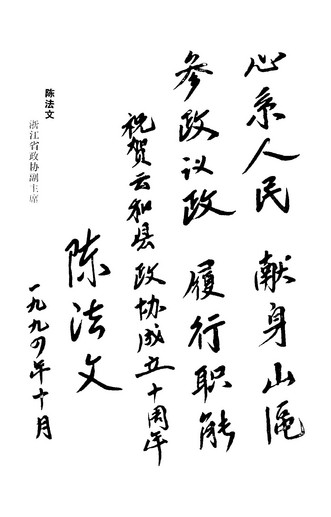 心系人民 献身山区
参政议政 履行职能
祝贺云和县政协成立十周年
陈法文
一九九四年十月
陈法文
浙江省政协副主席